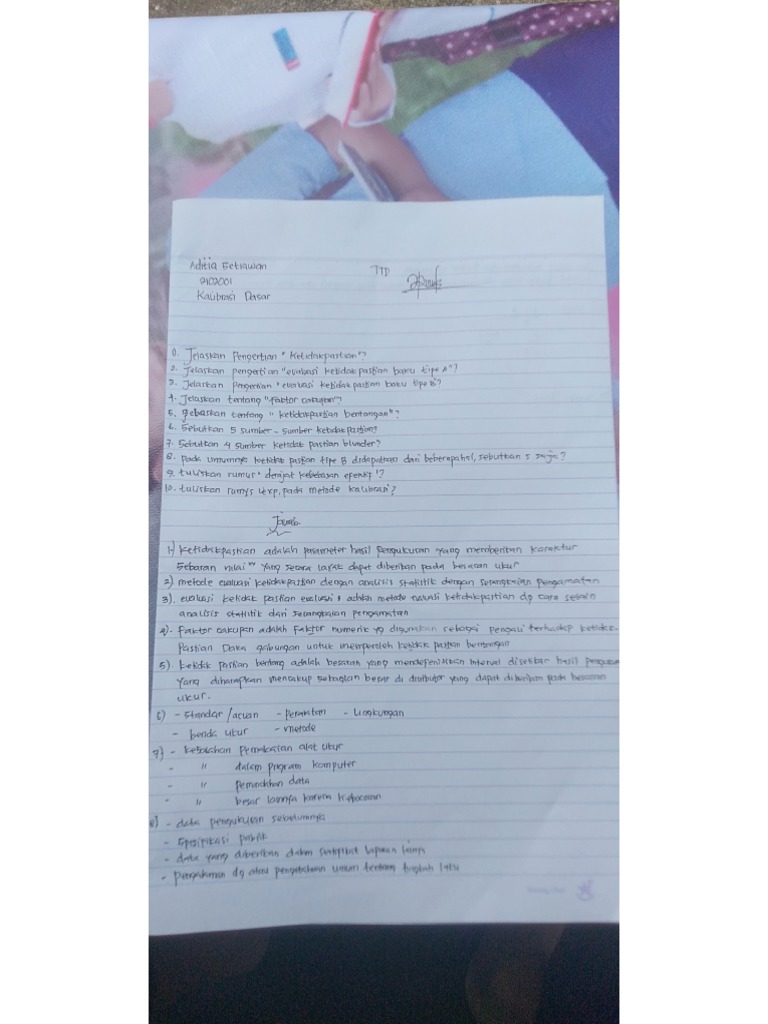 Aditia Setiawan TTD
2102001
Kalibrasi Dasar
1. Jelaskan Pengertian "Ketidakpastian"?
2. Jelaskan pengertian "evaluasi ketidak pastian baku tipe A"?
3. Jelaskan pengertian "evaluasi ketidak pastian baku tipe B"?
4. Jelaskan tentang "faktor cakupan"?
5. jebaskan tentang "ketidakpastian bentangan"?
6. Sebutkan 5 sumber - sumber ketidakpastian?
7. Sebutkan 4 sumber ketidak pastian blunder?
8. pada umumnya ketidak pastian tipe B didapatkan dari beberapahal, sebutkan 5 saja?
9. tuliskan rumus "derajat kebebasan efektif"?
10. tuliskan rumus Uexp, pada metode kalibrasi?
Jawab.
1) Ketidakpastian adalah parameter hasil pengukuran yang memberikan karaktur
Sebaran nilai" yang secara layak dapat diberikan pada besaran ukur
2) metode evaluasi ketidakpastian dengan analisis statistik dengan serangkaian pengamatan
3). evaluasi ketidak pastian evaluasi adalah metode evaluasi ketidakpastian dg cara selain
analisis statistik dari serangkaian pengamatan
4). faktor cakupan adalah faktor numerik yg digunakan sebagai pengali terhadap ketidak-
Pastian baku gabungan untuk memperoleh ketidak pastian bentangan
5). ketidak pastian bentang adalah besaran yang mendefenisikan interval disekitar hasil
Yang diharapkan mencakup sebagian besar di distribusi yang dapat diberikan pada besaran
ukur.
6) - Standar/acuan - Peralatan - Lingkungan
- benda ukur - metode
7) - kesalahan pemakaian alat ukur
- " dalam program komputer
- " pemindahan data
- " besar lainnya karena
8) - data pengukuran sebelumnya
- Spesifikasi pabrik
- data yang diberikan dalam sertifikat laporan lainnya
- Pengalaman dg atau pengetahuan umum tentang tingkah laku